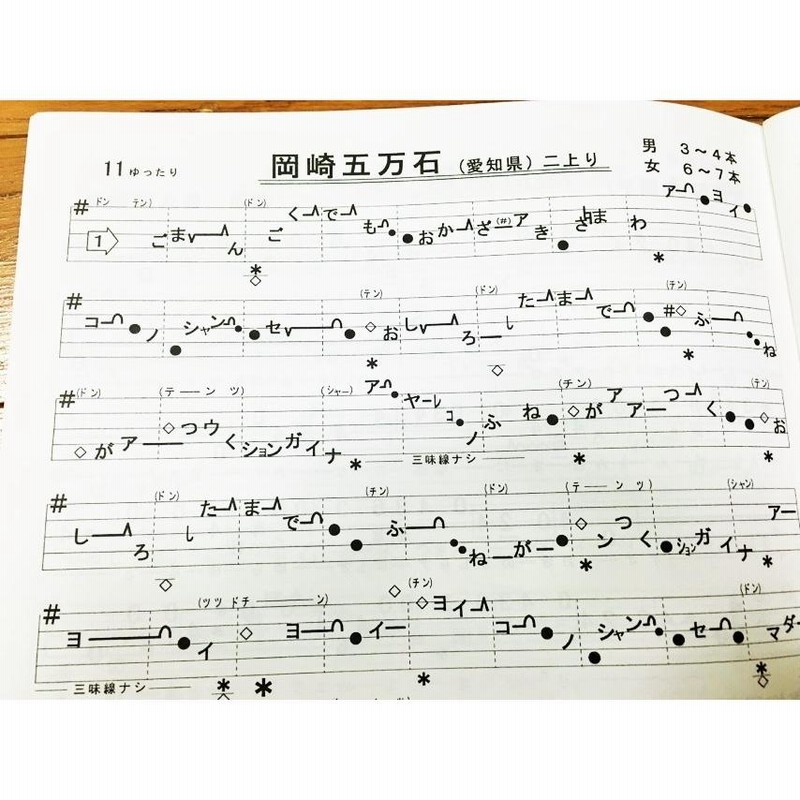 11 ゆったり 岡崎五万石 (愛知県) 二上り 男 3～4本
女 6～7本
ドン テン) (ドン)
1 ごまーん ごくーでーも おかーざ(#)ーアきざまわ アヨイ
(テン) (ドン) (チン)
コーノシャンセー おしーろーしたーまーで ふーね
(ドン) (テーンツ) (シャー) (チン) (テン)
がアーつウくションガイナ アヤーレコノふねがアアーつーくお
三味線ナシ
(ドン) (チン) (ドン) (テーンツ) (シャン)
しーろしたーまーで ふーねーがーンつくションガイナ アー
(ツツドチーーン) (チン) (ドン)
ヨーイ ヨーイー ヨイー コーノシャンセーマダー
三味線ナシ